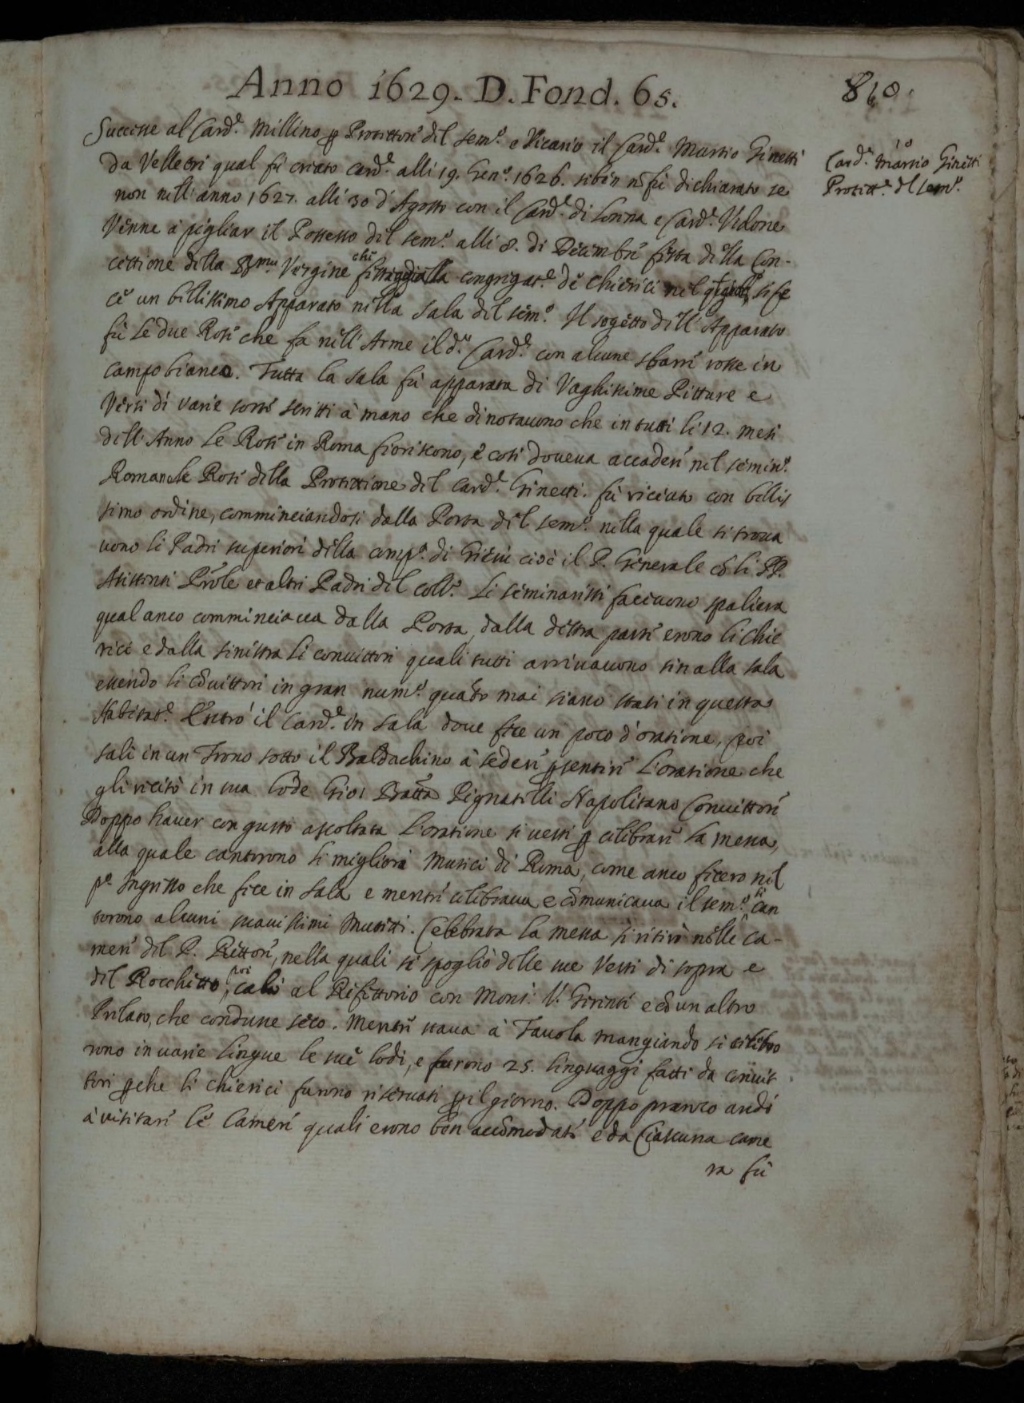 Anno 1629. D. Fond. 65.
Successe al Card.e Millino ꝑ Protettore del sem.o e Vicario il Card.e Martio Ginetti
da Velletri qual fù creato Card.e alli 19. Gen.o 1626. seben nõ fù dichiarato se
non nell'anno 1627. alli 30 d'Agosto con il Card.e di Sonna e Card.e Vidone
Venne a pigliar il Possesso del sem.o alli 8. di Decembre festa della Con-
cettione della SS.ma Vergine che festeggia la congregat.e de Chierici nel si fe
ce un bellissimo Apparato nella sala del sem.o Il sogetto dell'Apparato
fù le due Rose che fa nell'Arme il d.o Card.e con alcune sbarre rosse in
campo bianco. Tutta la sala fù apparata di Vaghissime Pitture e
Versi di varie sorte scritti à mano che dinotavono che in tutti li 12. mesi
dell'Anno le Rose in Roma fioriscono, e così doveva accadere nel semin.o
Romano le Rose della Protettione del Card.e Ginetti. fù ricevuto con bellis
simo ordine, comminciandosi dalla Porta del sem.o nella quale si trova
vono li Padri superiori della comp.a di Giesù cioè il P. Generale cõ li PP.
Assistenti Prõle et altri Padri del coll.o Li seminaristi facevono spaliera
qual anco comminciava dalla Porta, dalla destra parte erono li chie
rici e dalla sinistra li convittori quali tutti arrivavono sin alla sala
essendo li cõvittori in gran num.o quãto mai siano stati in questa
Habitat.e Entrò il Card.e in sala dove fece un poco d'oratione, poi
salì in un Trono sotto il Baldachino à sedere ꝑ sentire l'oratione che
gli recitò in sua lode Gioi Batta Pignatelli Napolitano Convittore
Doppo haver con gusto ascoltata l'oratione si vestì ꝑ celebrare la messa,
alla quale cantorono li migliori Musici di Roma, come anco fecero nel
p.o Ingresso che fece in sala e mentre celebrava e cõmunicava il sem.o si can
torono alcuni suavissimi Mutetti. Celebrata la messa si ritirò nelle ca-
mere del P. Rettore, nella quali si spogliò delle sue Vesti di sopra e
del Rocchetto, poi calò al Refettorio con Mons.r e cõ un altro
Prelato, che condusse seco. Mentre stava à Tavola mangiando si celebro
rono in varie lingue le sue lodi, e furono 25. linguaggi fatti da convit
tori ꝑche li chierici furono riservati ꝑ il giorno. Doppo pranzo andò
à visitare le Camere quali erono ben accõmodate e da Ciascuna came
ra fù
Card.e Martio Ginetti
Protett.e del sem.o